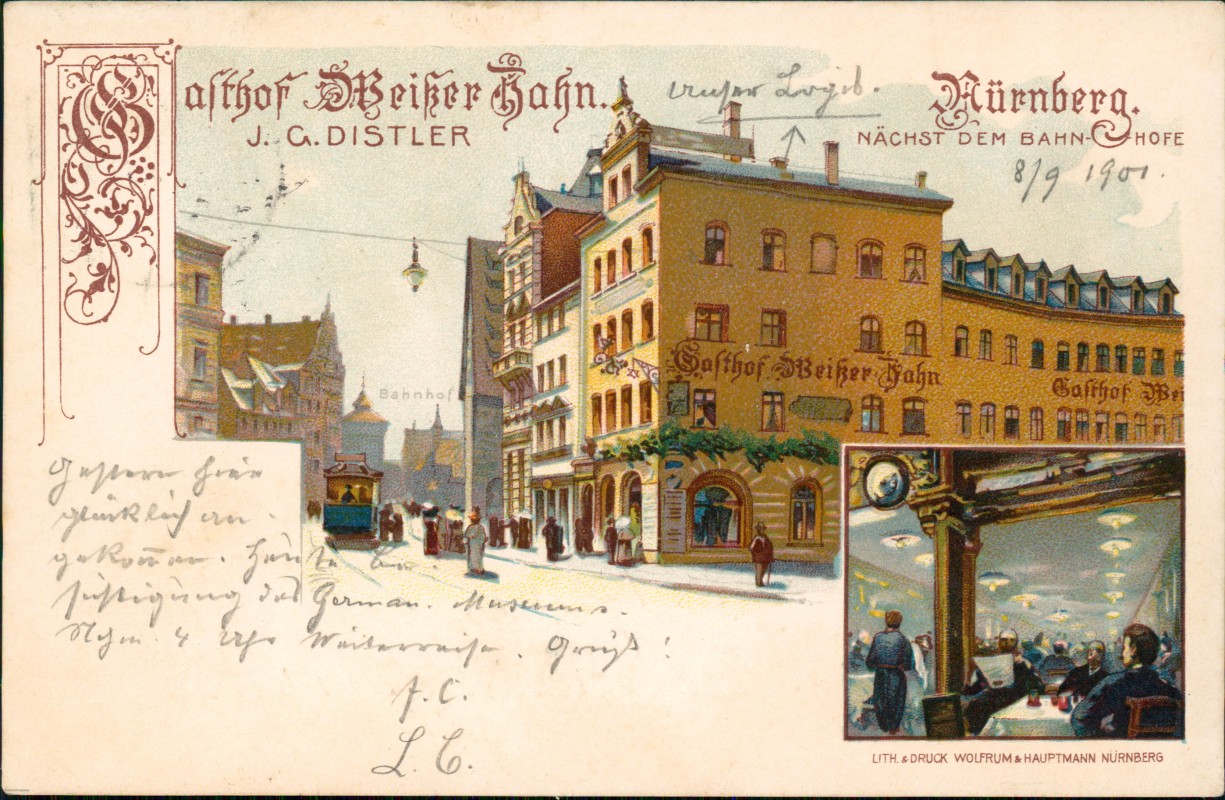 Gasthof Weißer Hahn.
J. G. DISTLER
Nürnberg.
NÄCHST DEM BAHN-HOFE
unser Logis.
8/9 1901.
Bahnhof
Gasthof Weißer Hahn
Gasthof Wei
Gestern hier
glücklich an-
gekom̄en. Heute Be-
sichtigung des German. Museums.
Nchm. 4 Uhr Weiterreise. Gruß!
F. C.
L. C.
LITH. & DRUCK WOLFRUM & HAUPTMANN NÜRNBERG